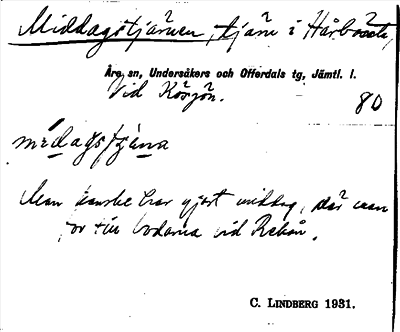 Middagstjärnen, tjärn i Hårbörsta,
Åre sn, Undersåkers och Offerdals tg, Jämtl. l.
Vid Kösjön.
80
mèdagstjäna
Man kanske har gjort middag, där man
for till bodarna vid Rekån.
C. LINDBERG 1931.